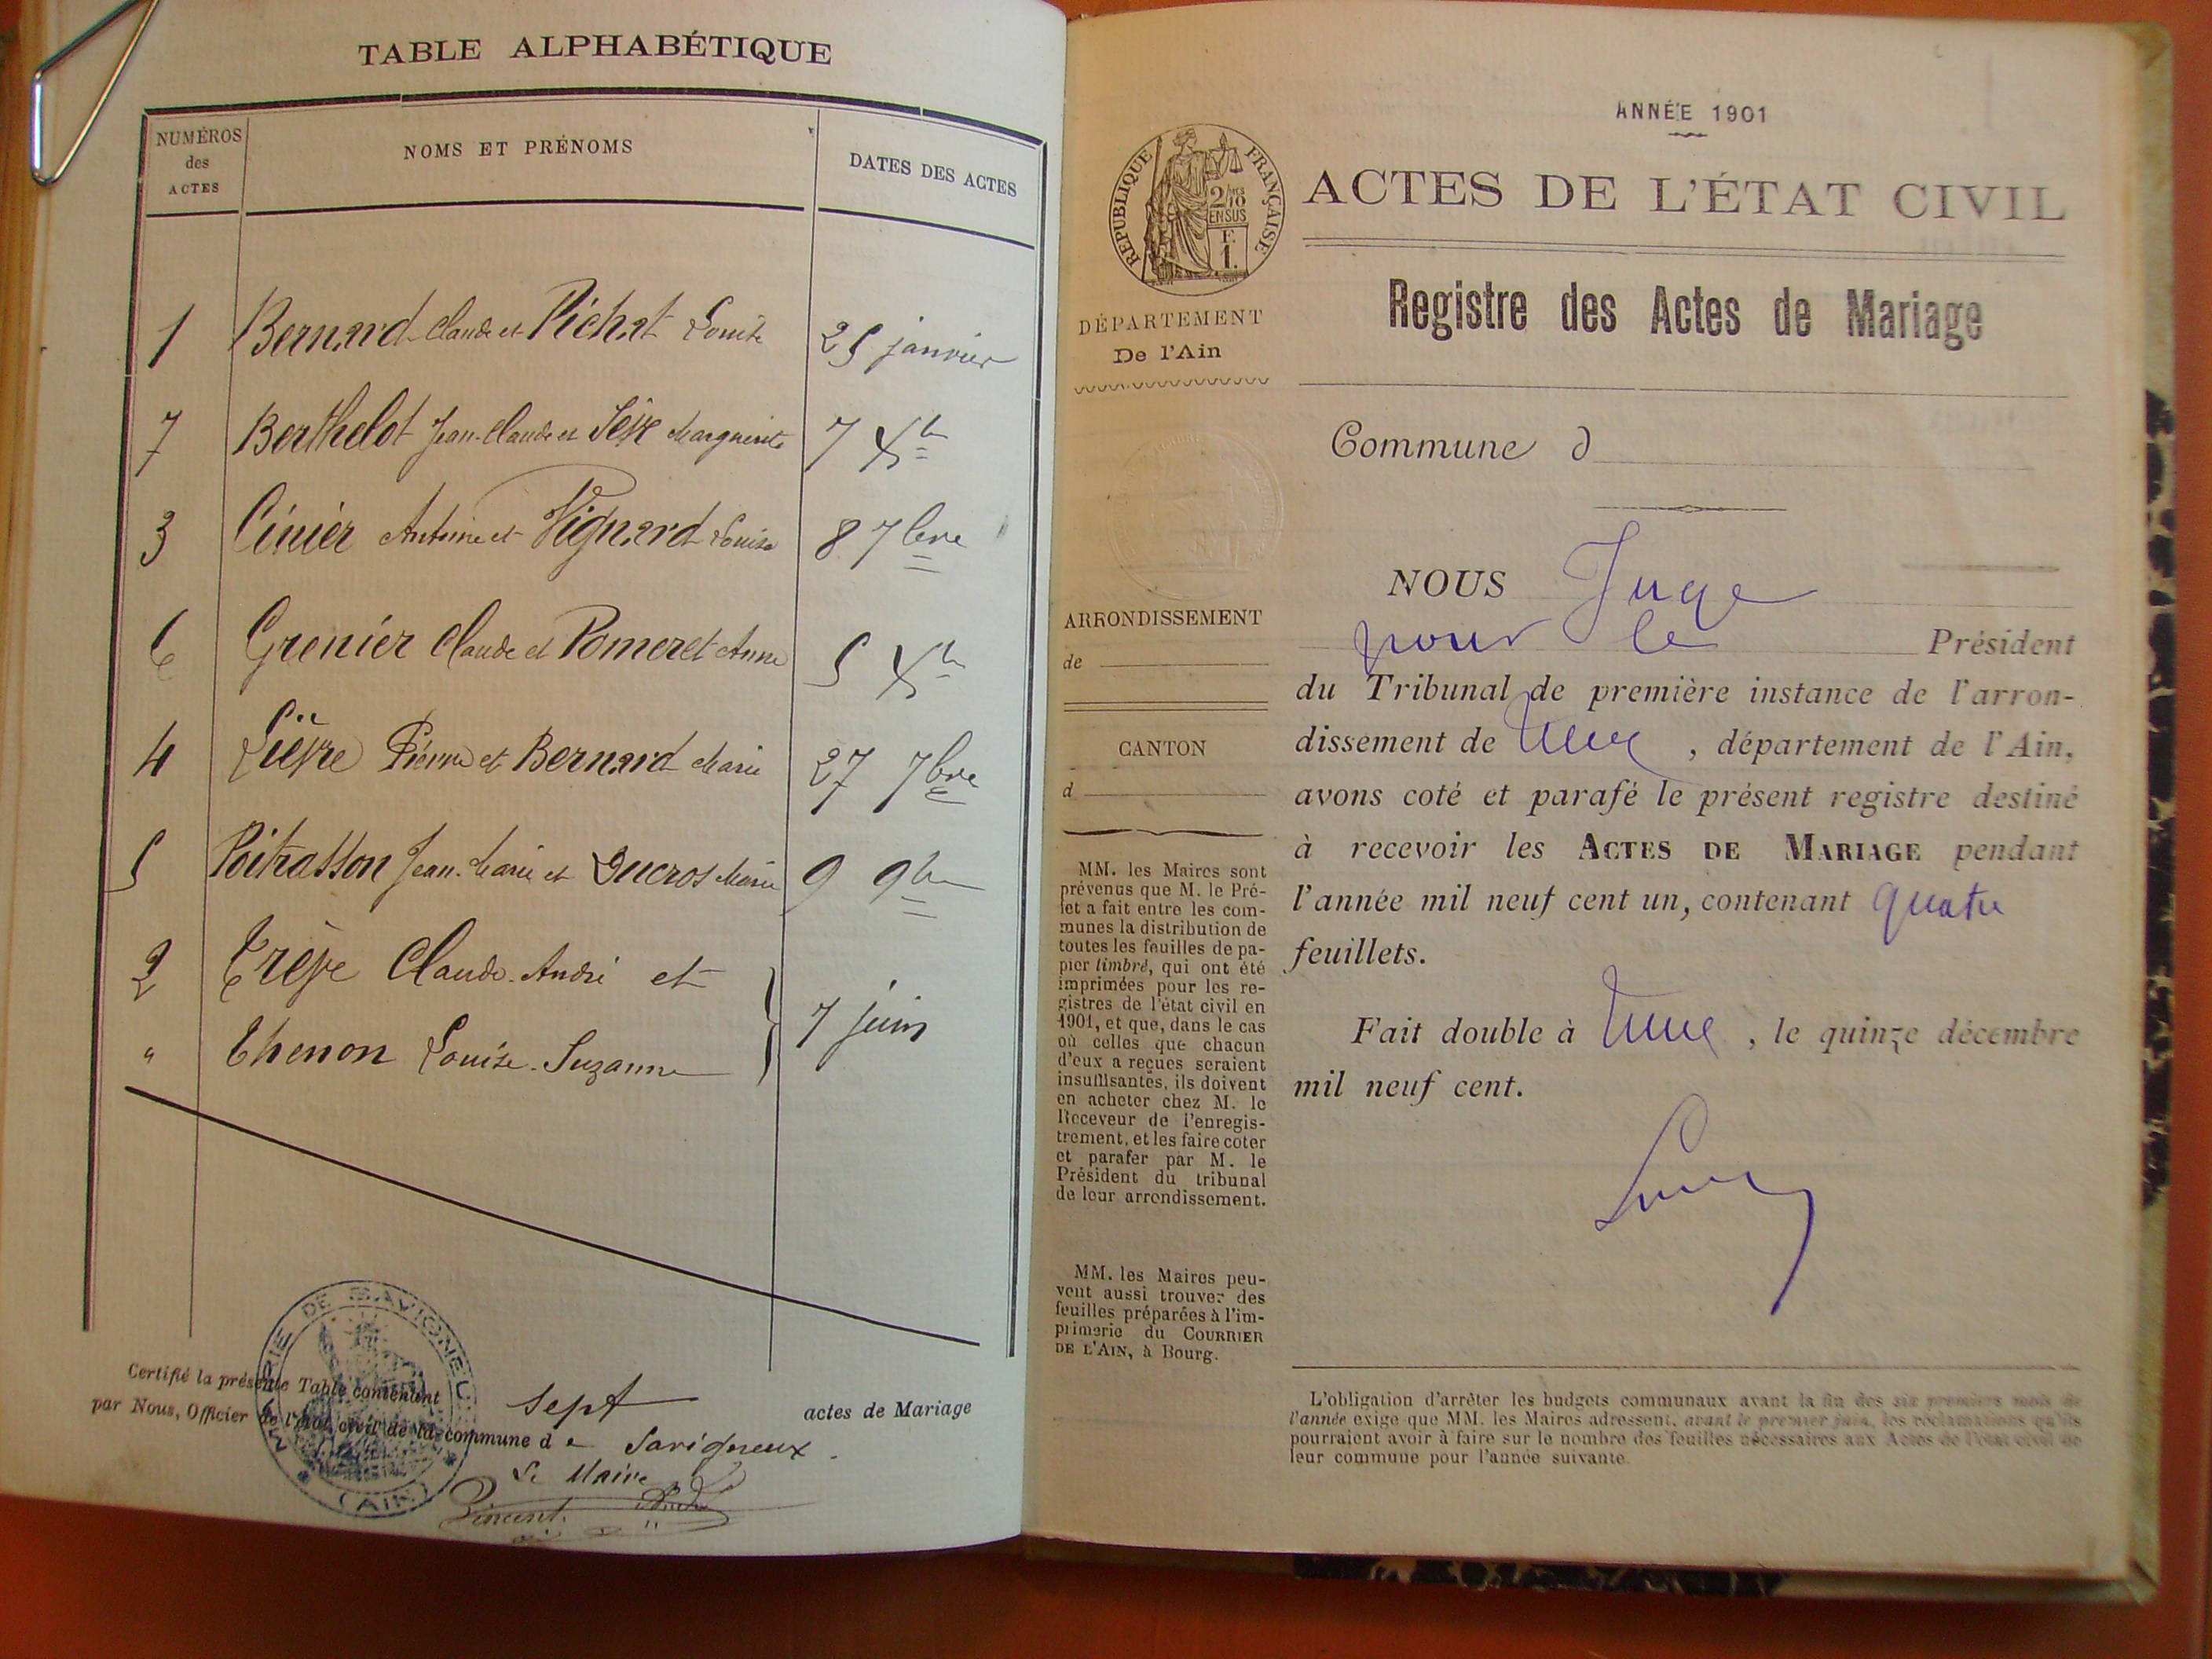 TABLE ALPHABÉTIQUE
NUMÉROS des ACTES
NOMS ET PRÉNOMS
DATES DES ACTES
1 Bernard Claude et Pichat Louise 25 janvier
7 Berthelot Jean-Claude et Sève Marguerite 7 Xbre
3 Cinier Antoine et Vignard Louise 8 7bre
6 Grenier Claude et Pomeret Anne 5 Xbre
4 Lièvre Pierre et Bernard Marie 27 7bre
5 Poitrasson Jean-Marie et Ducros Marie 9 9bre
2 Trève Claude-André et
" Thenon Louise-Suzanne } 7 juin
Certifié la présente Table contenant sept actes de Mariage
par Nous, Officier de l'état civil de la commune de Savigneux.
Le Maire
MAIRIE DE SAVIGNEUX
(AIN)
ANNÉE 1901
RÉPUBLIQUE FRANÇAISE
2/10 EN SUS
F. 1.
ACTES DE L'ÉTAT CIVIL
Registre des Actes de Mariage
DÉPARTEMENT
De l'Ain
Commune d
ARRONDISSEMENT
de
CANTON
d
MM. les Maires sont
prévenus que M. le Pré-
fet a fait entre les com-
munes la distribution de
toutes les feuilles de pa-
pier timbré, qui ont été
imprimées pour les re-
gistres de l'état civil en
1901, et que, dans le cas
où celles que chacun
d'eux a reçues seraient
insuffisantes, ils doivent
en acheter chez M. le
Receveur de l'enregis-
trement, et les faire coter
et parafer par M. le
Président du tribunal
de leur arrondissement.
MM. les Maires peu-
vent aussi trouver des
feuilles préparées à l'im-
primerie du COURRIER
DE L'AIN, à Bourg.
NOUS Juge
pour le Président
du Tribunal de première instance de l'arron-
dissement de , département de l'Ain,
avons coté et parafé le présent registre destiné
à recevoir les ACTES DE MARIAGE pendant
l'année mil neuf cent un, contenant quatre
feuillets.
Fait double à , le quinze décembre
mil neuf cent.
L'obligation d'arrêter les budgets communaux avant la fin des six premiers mois de
l'année exige que MM. les Maires adressent, avant le premier juin, les réclamations qu'ils
pourraient avoir à faire sur le nombre des feuilles nécessaires aux Actes de l'état civil de
leur commune pour l'année suivante.